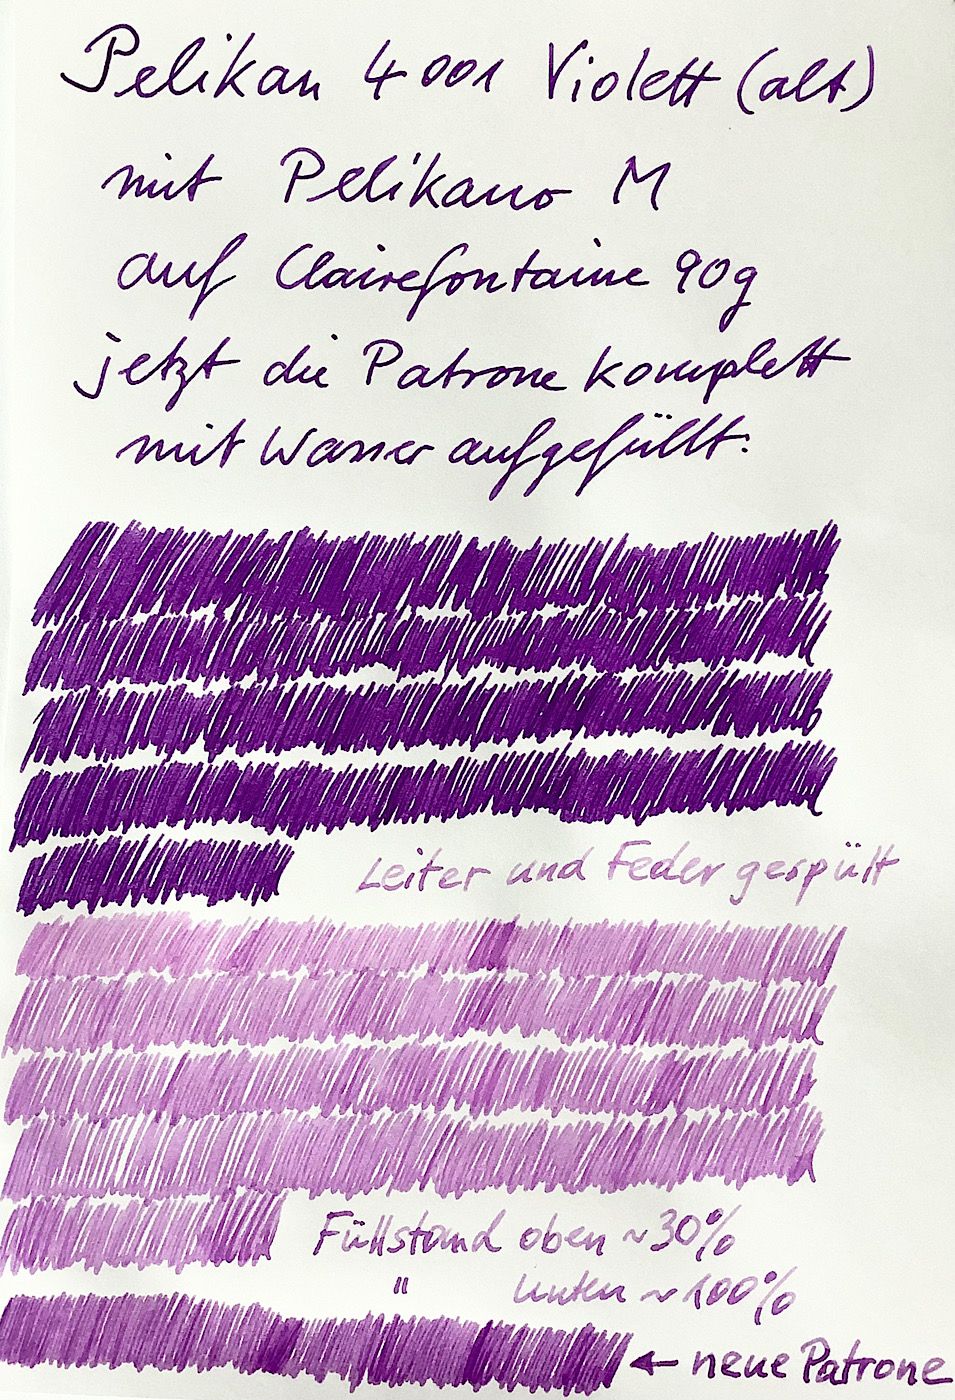 Pelikan 4001 Violett (alt)
mit Pelikano M
auf Clairefontaine 90g
jetzt die Patrone komplett
mit Wasser aufgefüllt:
Leiter und Feder gespült
Füllstand oben ~30%
" unten ~100%
← neue Patrone